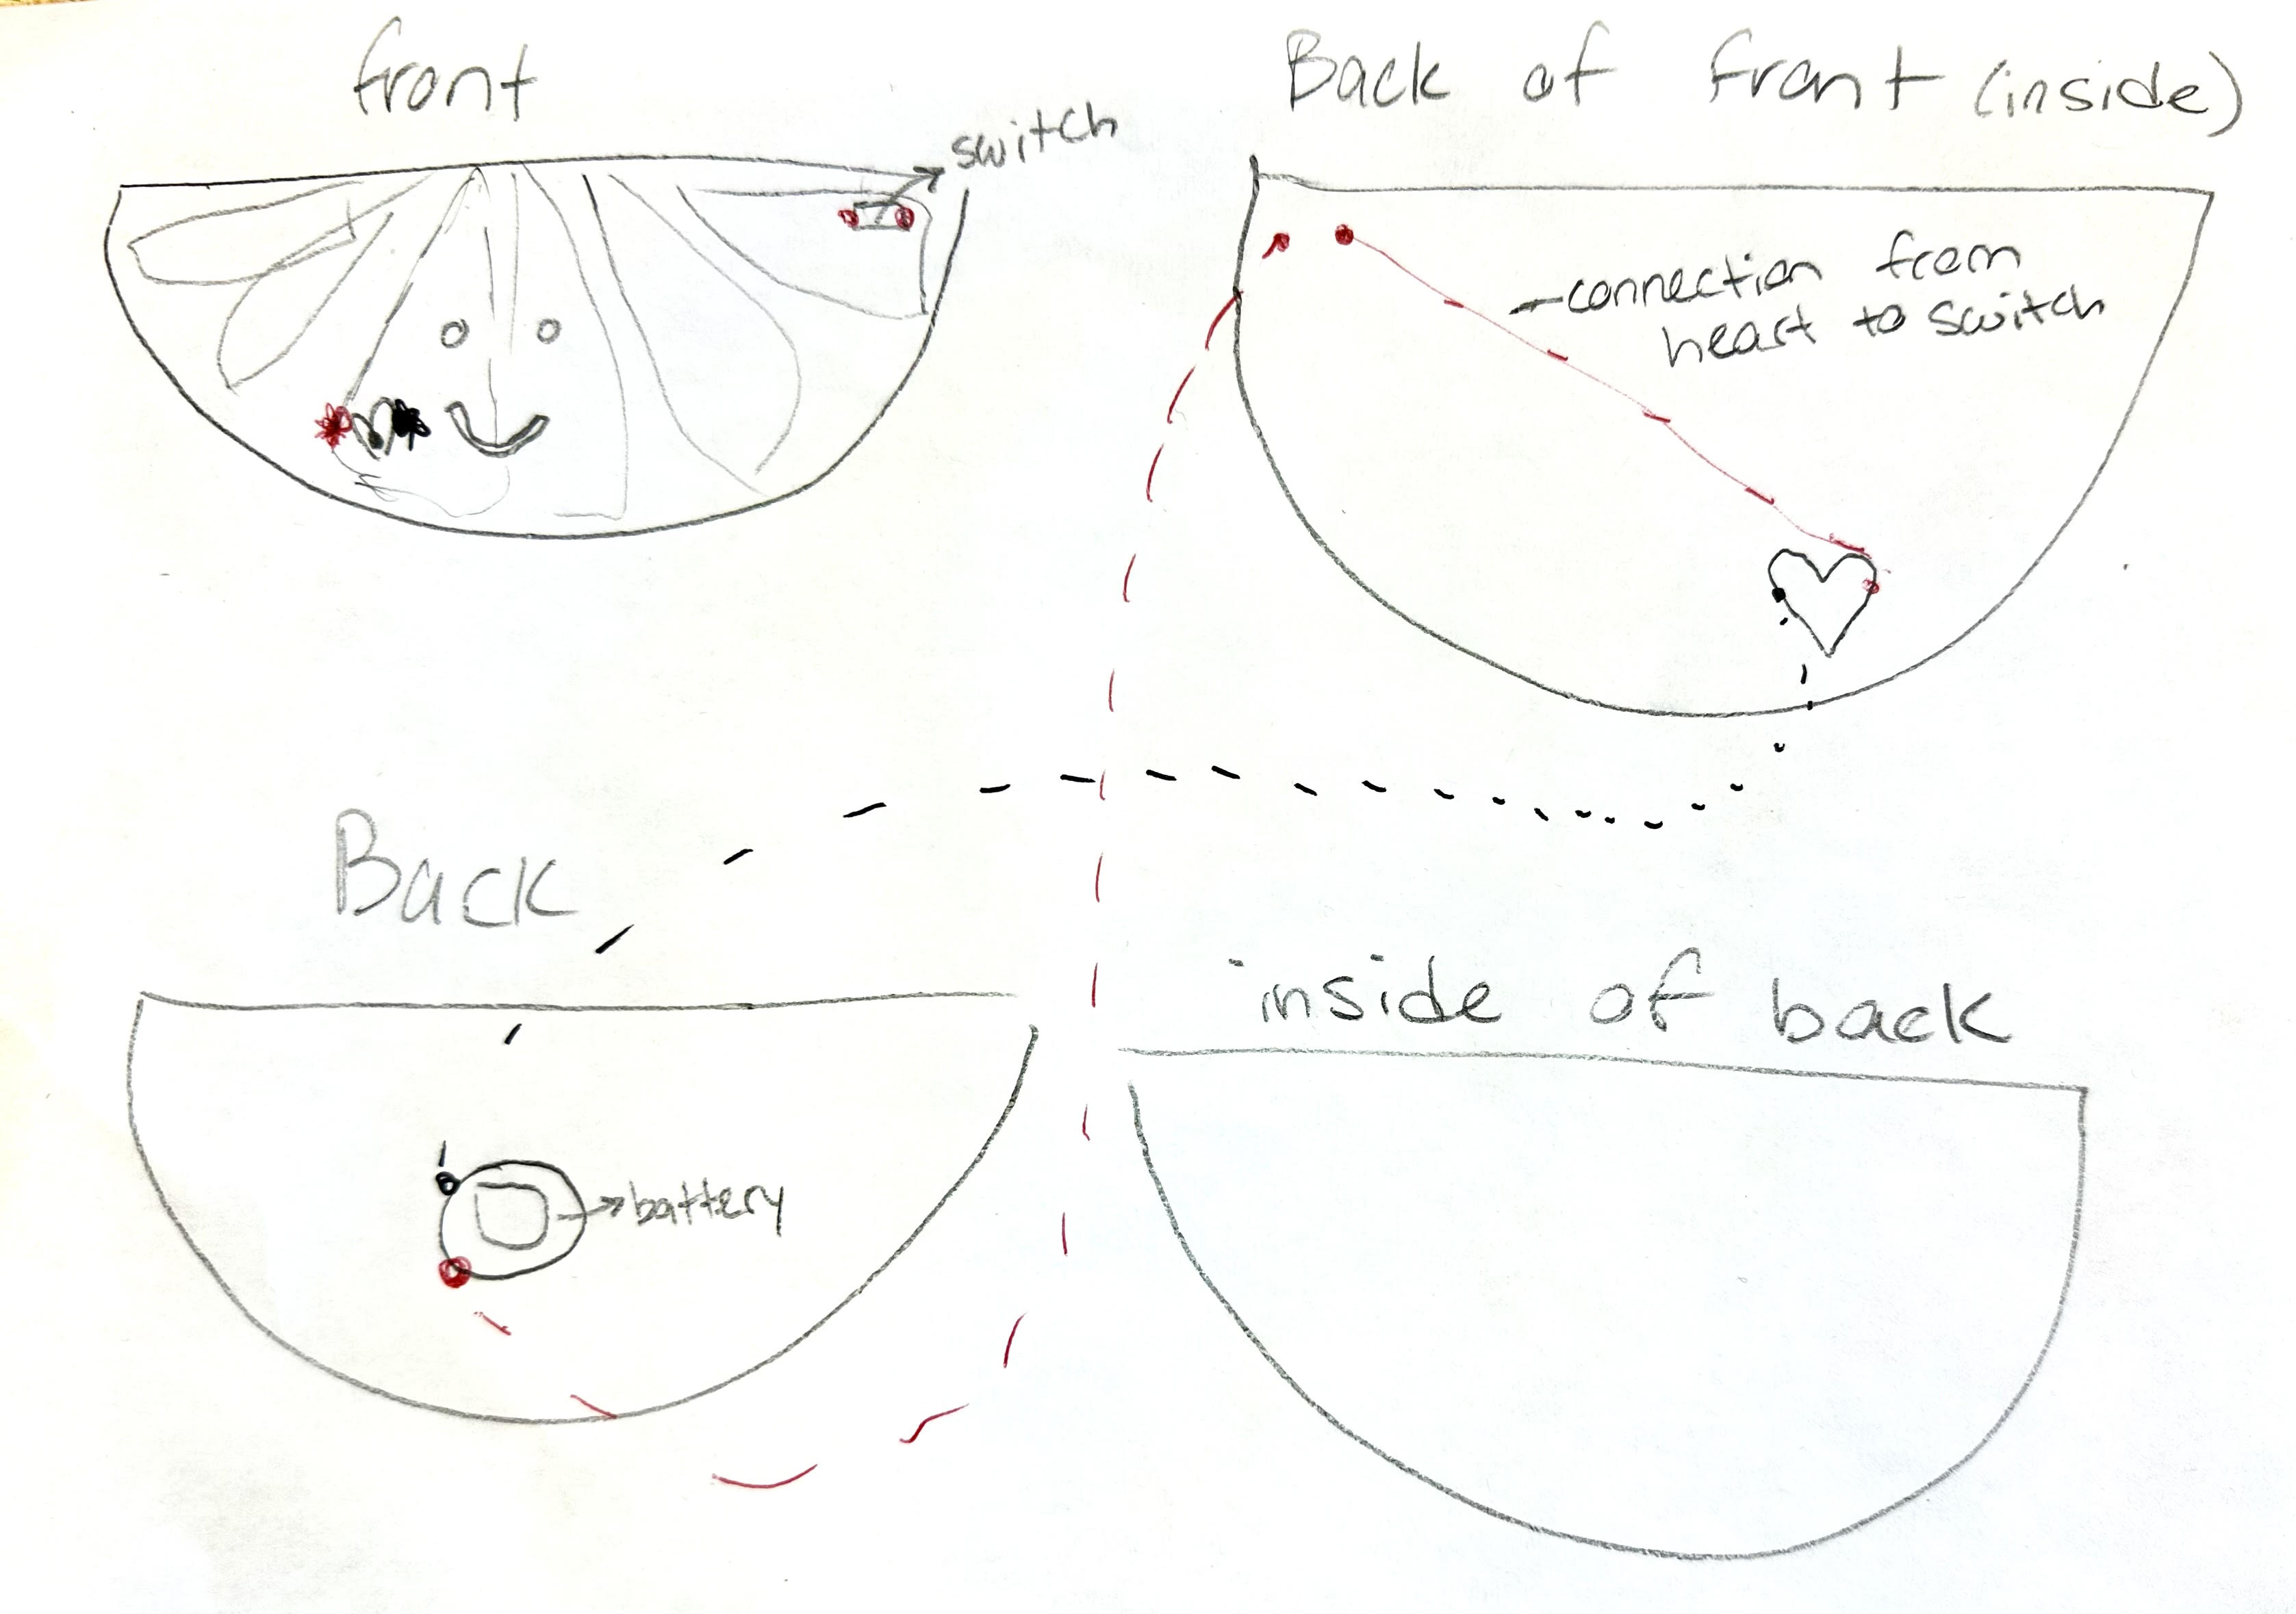 front
switch
Back of front (inside)
-connection from
heart to switch
Back
battery
inside of back